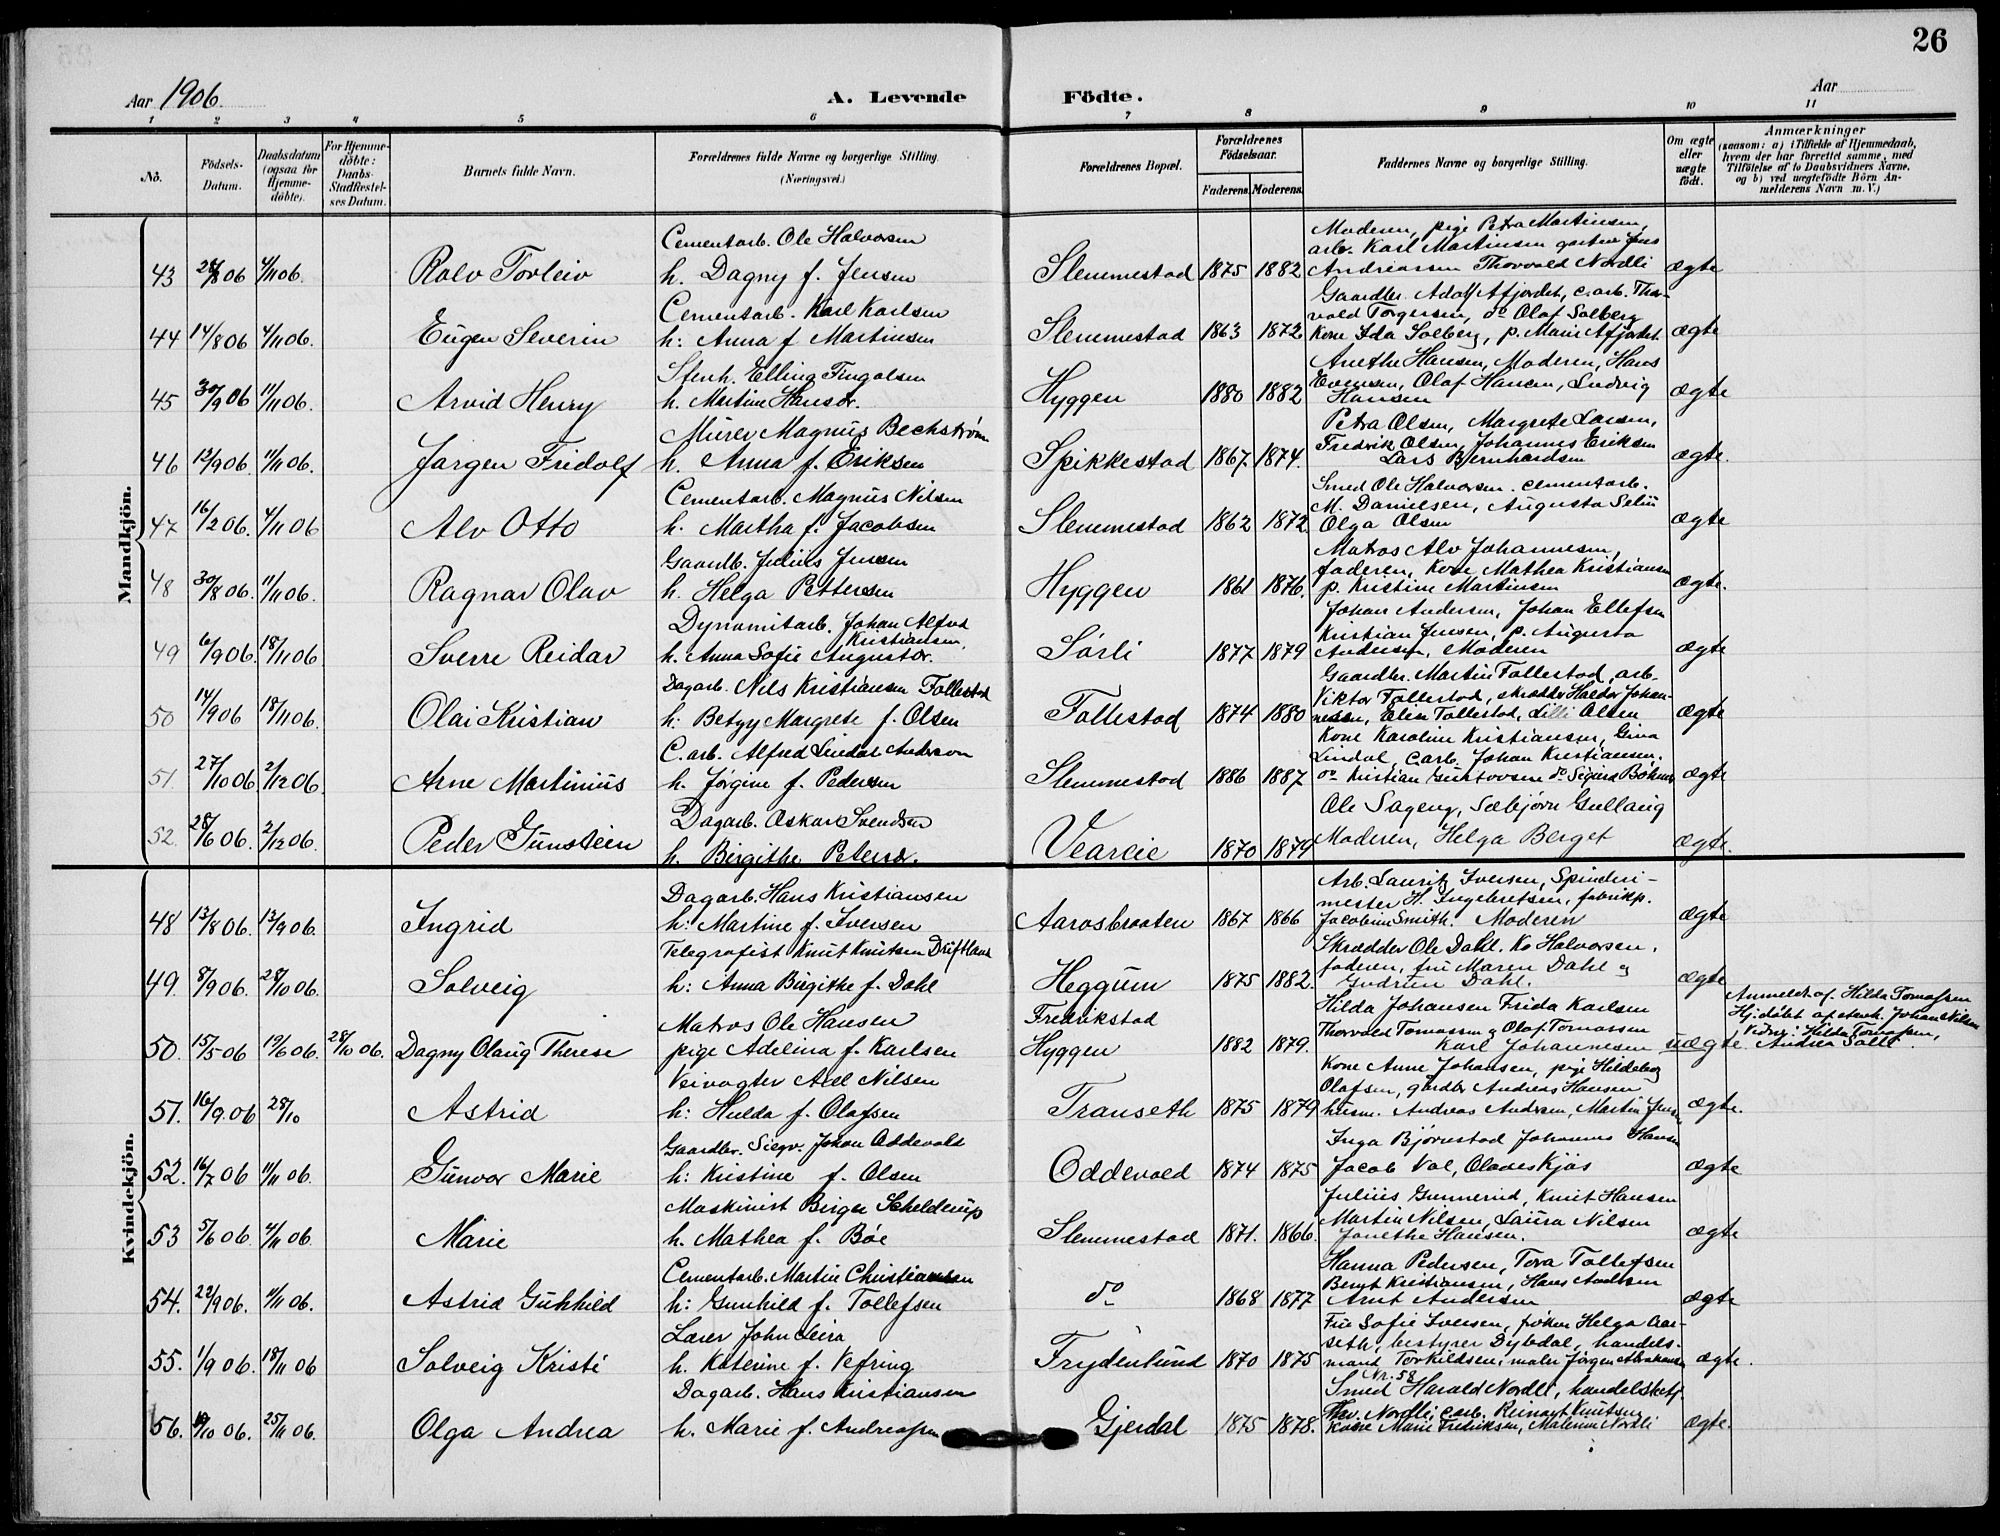 26
Aar 1906.
A. Levende Födte.
Aar
1 2 3 4 5 6 7 8 9 10 11
No.
Födsels-Datum.
Daabsdatum (ogsaa for Hjemme-döbte).
For Hjemme-döbte: Daabs-Stadfæstel-ses Datum.
Barnets fulde Navn.
Forældrenes fulde Navne og borgerlige Stilling. (Næringsvei.)
Forældrenes Bopæl.
Forældrenes Födselsaar.
Faderens. Moderens.
Faddernes Navne og borgerlige Stilling.
Om ægte eller uægte födt.
Anmærkninger
(saasom: a) i Tilfælde af Hjemmedaab, hvem der har forrettet samme, med Tilföielse af to Daabsvidners Navne, og b) ved uægtefödte Börn An-melderens Navn m. V.)
Mandkjön.
Cementarb. Ole Halvorsen
Moderen, pige Petra Martinsen,
arb. Karl Martinsen gartner Jens
43 28/8 06 4/11 06. Rolv Torleiv h. Dagny f. Jensen Slemmestad 1875 1882 Andreassen Thorvald Nordli ægte
Cementarb. Karl Karlsen
Gaardbr. Adolf Afjordet, c.arb. Thor-
vald Torgersen, do Olaf Solberg
44 14/8 06 4/11 06. Eugen Severin h: Anna f Martinsen Slemmestad 1863 1872 Kone Ida Solberg, p. Marie Afjordet. ægte
Stenh. Elling Fingalsen
Anethe Hansen, Moderen, Hans
Evensen, Olaf Hansen, Ludvig
45 30/9 06 11/11 06. Arvid Henry h. Martine Hansdr. Hyggen 1880 1882 Hansen ægte
Murer Magnus Bechstrøm
Petra Olsen, Margrete Larsen,
Fredrik Olsen, Johannes Eriksen
46 13/9 06 11/11 06. Jørgen Fridolf h. Anna f. Eriksen Spikkestad 1867. 1874. Lars Bernhardsen ægte.
Cementarb. Magnus Nilsen
Smed Ole Halvorsen. cementarb.
M. Danielsen, Augusta
47 16/2 06. 4/11 06 Alv Otto h. Martha f. Jacobsen Slemmestad 1862 1872. Olga Olsen ægte
Gaardb. Julius Jensen
Matros Alv Johannesen,
faderen, Kone Mathea Kristiansen
48 30/8 06. 11/11 06. Ragnar Olav h. Helga Pettersen Hyggen 1861 1876. p. Kristine Martinsen ægte.
Dynamitarb. Johan Alfred Kristiansen,
Johan Andersen, Johan Ellefsen
Kristian Jensen, p. Augusta
49 6/9 06. 18/11 06 Sverre Reidar h. Anna Sofie Augustdr. Sørli 1877 1879 Andersen, Moderen ægte
Dagarb. Nils Kristiansen Follestad
Gaardbr. Martin Follestad, arb.
Viktor Follestad, skrædder Haldor Johan-
50 14/9 06 18/11 06. Olai Kristian h: Betzy Margrete f. Olsen Follestad 1874 1880 nessen, Elen Follestad, Lilli Olsen ægte
C. arb. Alfred Lindal Andersen
Kone Karoline Kristiansen, Gina
Lindal, c.arb. Johan Kristiansen.
51. 27/10 06 2/12 06. Arne Martinius h. Jørgine f. Pedersen Slemmestad 1886 1887 do Kristian Gustavsen do Sigurd Bøhmer ægte
Dagarb. Oskar Svendsen
Ole Sageng, Sæbjørn Gullaug
52. 28/6 06. 2/12 06. Peder Gunstein h. Birgithe Petersdr. Veareie 1870 1879 Moderen, Helga Berget ægte.
Kvindekjön.
Dagarb. Hans Kristiansen
Arb. Lauritz Iversen, Spinderi-
mester H. Ingebretsen, fabrikp.
48 13/8 06. 13/9 06. Ingrid h: Martine f. Iversen Aarosbraaten 1867 1866 Jacobine Smith. Moderen ægte
Telegrafist Knut Knutsen Driftland
Skrædder Ole Dahl. Ko Halvorsen,
faderen, fru Maren Dahl og
49. 8/9 06. 28/10 06. Solveig h: Anna Birgithe f. Dahl Heggum 1875 1882. Gudrun Dahl. ægte
Matros Ole Hansen
Fredrikstad
Hilda Johansen Frida Karlsen
Thorvald Tomassen og Olaf Tomassen
Anmeldt af. Hilda Tomassen
Hj.döbt af stenh. Johan Nilsen
Vidner: Hilda Tomassen,
50. 15/5 06 19/6 06. 28/10 06. Dagny Olaug Therese pige Adelina f. Karlsen Hyggen 1882 1879. Karl Johannesen uægte. Andrea Solli.
Veivogter Axel Nilsen
Kone Anne Johansen, pige Hildeborg
Olafsen, gårdbr Andreas Hansen
51. 16/9. 06 28/10 Astrid h: Hulda f. Olafsen Transeth 1875 1879 husm. Andreas Andersen, Martin Jensen ægte.
Gaardbr. Sigv. Johan Oddevald
Inga Bjørnstad Johannes Hansen
52. 16/7 06 11/11 06. Gunvor Marie h: Kristine f. Olsen Oddevald 1874 1875 Jacob Val, Olaves Kjøs ægte
Maskinist Birger Schelderup
Julius Gunnerud, Knut Hansen
Martin Nilsen, Laura Nilsen
53 5/6 06. 4/11 06. Marie h. Mathea f. Bøe Slemmestad 1871. 1866. Janethe Hansen. ægte
Cementarb. Martin Christiansen
Hanna Pedersen, Tora Tollefsen
Bernt Kristiansen, Hans Andersen
54. 22/9 06. 4/11 06. Astrid Guhhild h: Gunhild f. Tollefsen do 1868 1877 Arnt Andersen ægte
Lærer John Leira
Fru Sofie Iversen, frøken Helga Aar-
seth, bestyrer Dybdal, handels-
55. 1/9 06. 18/11 06 Solveig Kristi h. Katerine f. Vefring Frydenlund 1870 1875 mand Torkildsen, maler Jørgen Abrahamsen ægte.
Nr. 58
Dagarb. Hans Kristiansen
Smed Harald Nordli, handelsbetj.
Thv. Nordli, c.arb. Reinart Knutsen
56. 19/10 06. 25/11 06. Olga Andrea h. Marie f. Andreassen Gjerdal 1875 1878. Kone Marie Fredriksen, Malenne Nordli ægte.